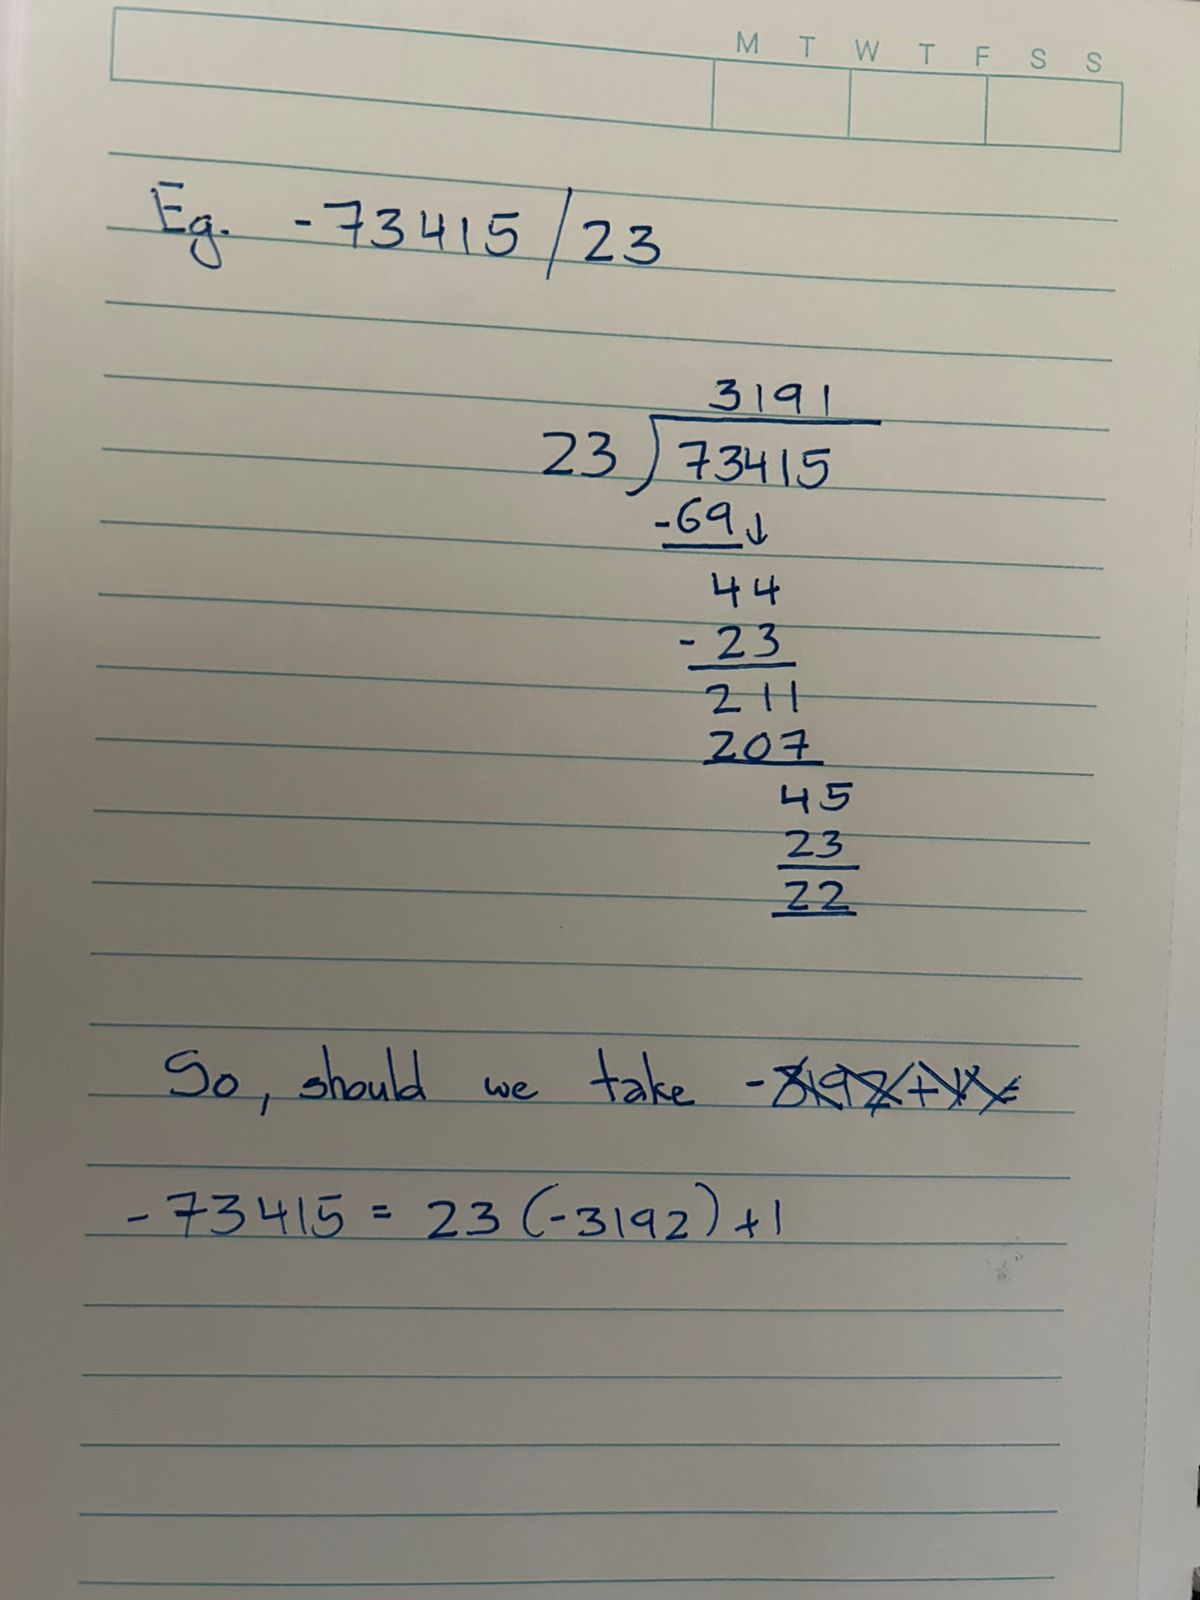 M T W T F S S
Eg. -73415/23
3191
23)73415
-69↓
44
-23
211
207
45
23
22
So, should we take -
-73415 = 23(-3192)+1